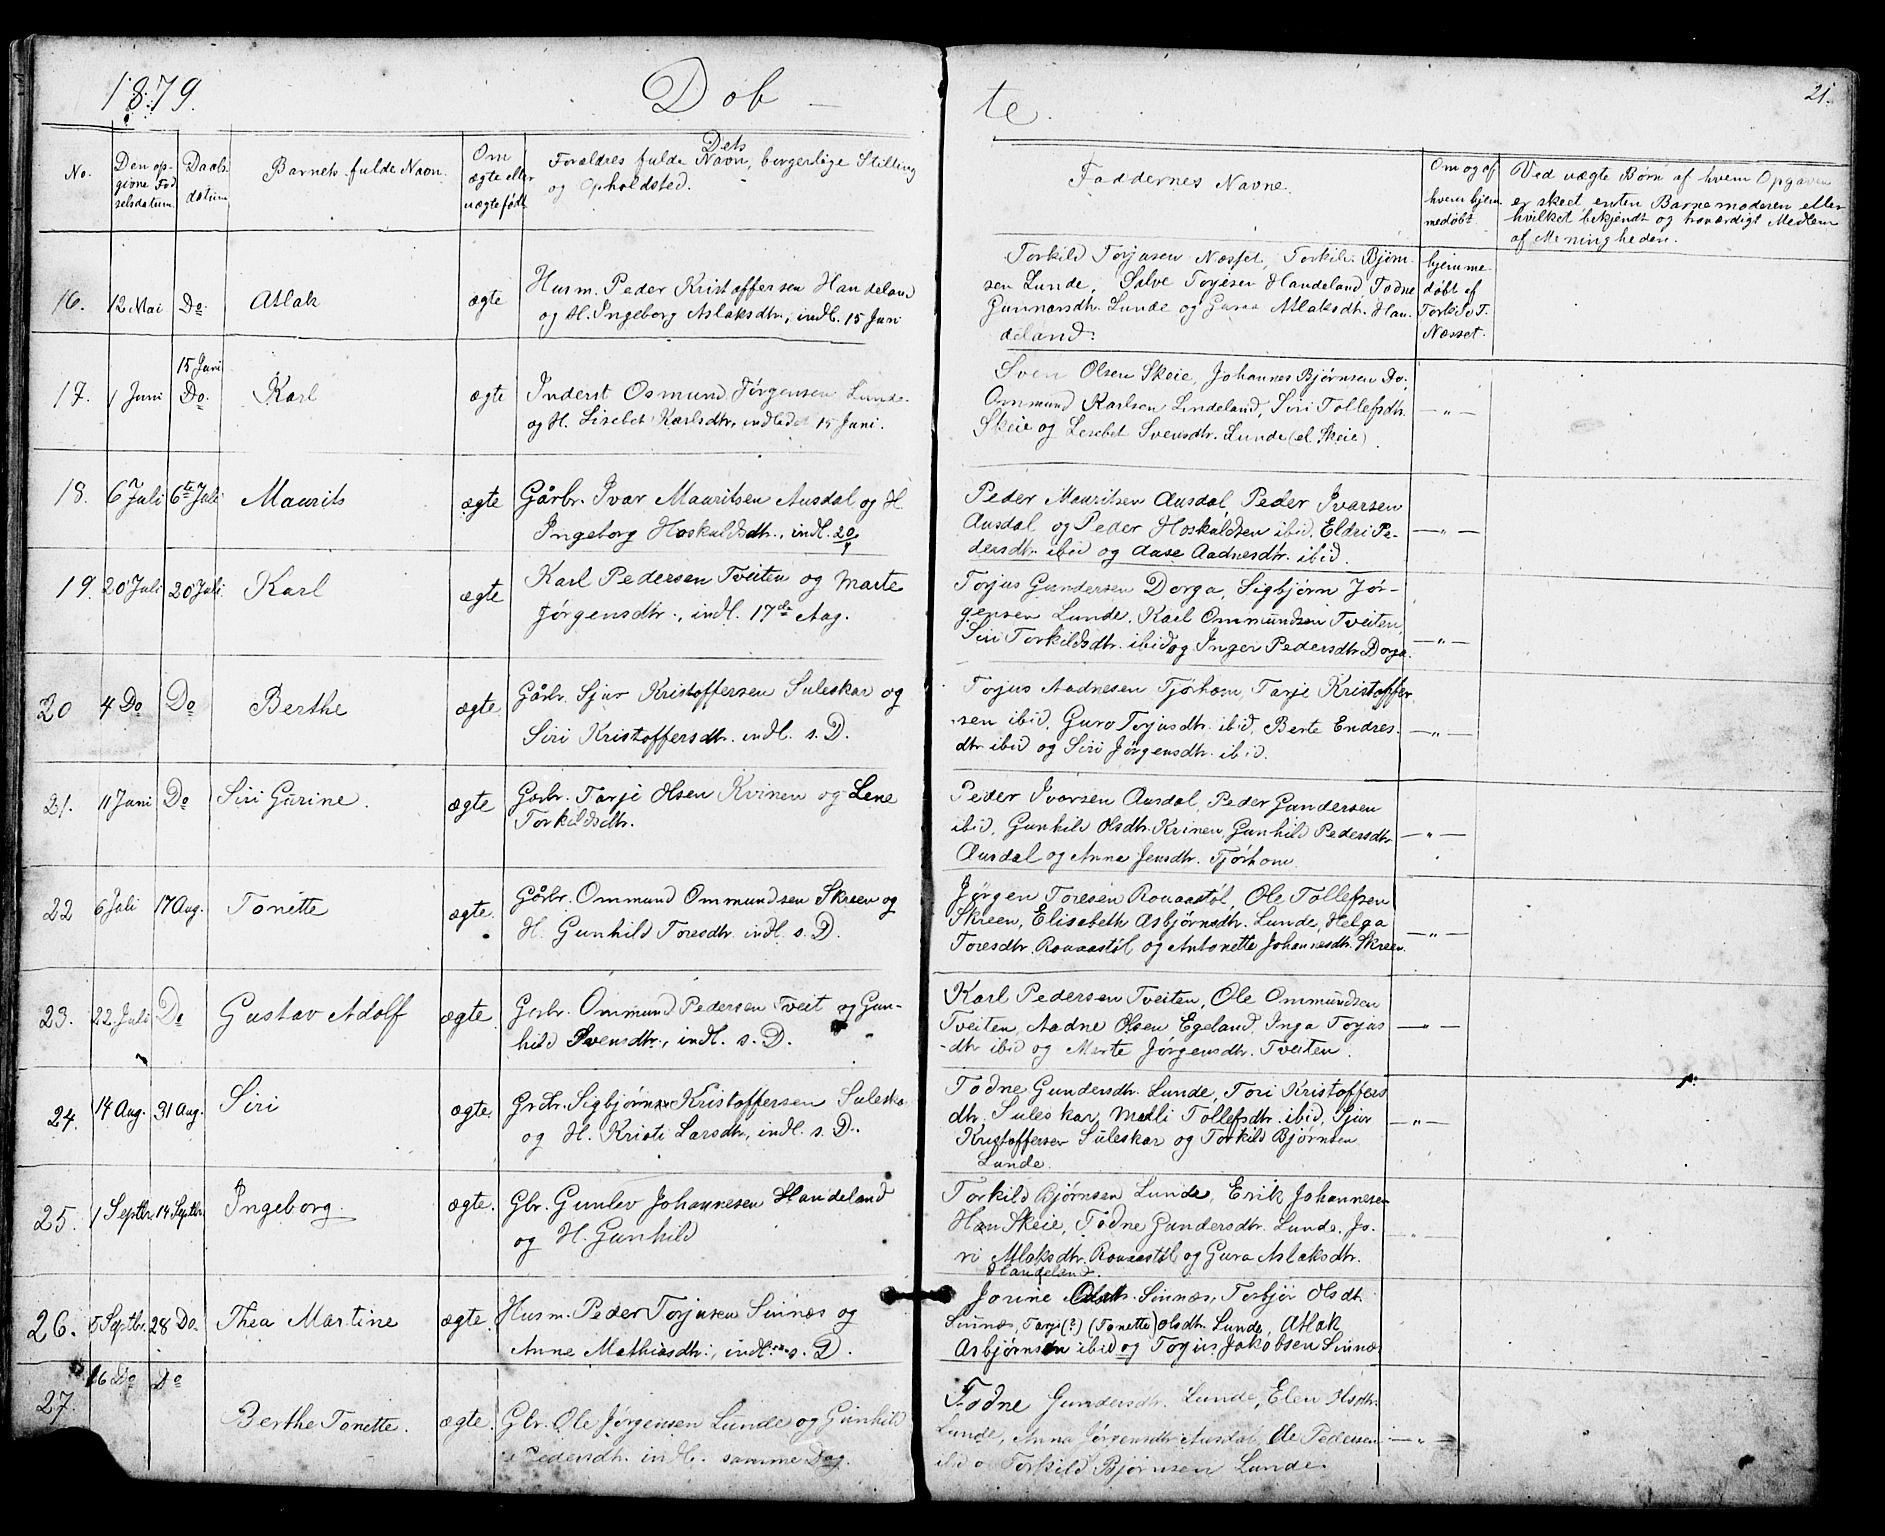 1879.
Døb-
te.
21.
No.
Den op-
givne Fød
selsdatum.
Daabs
datum
Barnets fulde Navn.
Om
ægte eller
uægte født.
Dets
Forældres fulde Navn, borgerlige Stilling
og Opholdsted.
Faddernes Navne.
Om og af
hvem hjem
medøbt.
Ved uægte Børn af hvem Opgaven
er skeet, enten Barnemoderen eller
hvilket bekjendt og troværdigt Medlem
af Menigheden.
16. 12 Mai Do. Atlak ægte
Husm. Peder Kristoffersen Handeland
og H. Ingeborg Aslaksdtr., indl. 15 Juni
Torkild Torjusen Næsset, Torkild Bjørn-
sen Lunde, Salve Torjesen Handeland, Todne
Gunnarsdtr. Lunde og Guroa Atlaksdtr. Han-
deland.
hjemme-
døbt af
Torkild T.
Næsset.
17. 1 Juni 15 Juni
Do. Karl ægte
Inderst Osmund Jørgensen Lunde
og H. Lisebet Karlsdtr, indledet 15 Juni.
Sven Olsen Skeie, Johannes Bjørnsen Do.,
Ommund Karlsen Lindeland, Siri Tollefsdtr.
Skeie og Lesebet Svensdtr. Lunde (el. Skeie).
— " —
18. 6 Juli 6te Juli Maurits ægte
Gårbr. Ivar Mauritsen Ausdal og H.
Ingeborg Hoskuldsdtr., indl. 20/
Peder Mauritsen Ausdal, Peder Ivarsen
Ausdal, og Peder Hoskuldsen ibid, Eldri Pe-
dersdtr. ibid og Aase Aadnesdtr. ibid.
— " —
19. 20 Juli 20 Juli. Karl ægte
Karl Pedersen Tveiten og Marte
Jørgensdtr., indl. 17de Aug.
Torjus Gundersen Dorga, Sigbjørn Jør-
gensen Lunde, Karl Ommundsen Tveiten,
Siri Torkildsdtr. ibid og Inger Pedersdtr Dorga.
— " —
20 4 Do Do Berthe ægte.
Gårbr. Sjur Kristoffersen Suleskar og
Siri Kristoffersdtr. indl. s. D.
Torjus Aadnesen Tjørhom, Tarje Kristoffer
sen ibid, Guro Torjusdtr. ibid, Berte Endres-
dtr ibid og Siri Jørgensdtr. ibid.
— " —
21. 11 Juni Do Siri Gurine. ægte
Gårbr. Tarje Olsen Kvinen og Lene
Torkildsdtr.
Peder Ivarsen Ausdal, Peder Gundersen
ibid, Gunhild Olsdtr. Kvinen, Gunhild Pedersdtr
Ausdal og Anne Jensdtr. Tjørhom.
— " —
22 6 Juli 17 Aug. Tonette ægte.
Gårbr. Ommund Ommundsen Skreen og
H. Gunhild Toresdtr. indl. s. D.
Jørgen Toresen Rouaastøl, Ole Tollefsen
Skreen, Elisabeth Asbjørnsdtr. Lunde, Helga
Toresdtr. Rouaastøl og Antonette Johannesdtr. Skreen.
— " —
23. 22. Juli Do Gustav Adolf ægte.
Gårbr. Ommund Pedersen Tveit og Gun-
hild Svensdtr., indl. s. D.
Karl Pedersen Tveiten, Ole Ommundsen
Tveiten, Aadne Olsen Egeland, Inga Torjus
-dtr ibid og Marte Jørgensdtr. Tveiten.
— " —
24. 14 Aug. 31 Aug. Siri ægte.
Grdbr. Sigbjørn Kristoffersen Suleska
og H. Kristi Larsdtr, indl. s. D.
Todne Gundersdtr. Lunde, Tori Kristoffers
dtr. Suleskar, Malli Tollefsdtr. ibid, Sjur
Kristoffersen Suleskar og Torkild Bjørnsen
Lunde.
— " —
25. 1 Septbr. 14 Septbr. Ingeborg. ægte.
Gbr. Gunlev Johannesen Handeland
og H. Gunhild
Torkild Bjørnsen Lunde, Erik Johannesen
Han Skeie, Todne Gundersdtr. Lunde, Jo-
ri Atlaksdtr. Rouaastøl og Gura Aslaksdtr.
Handeland.
— " —
26. 5 Septbr. 28 Do. Thea Martine ægte.
Husm. Peder Torjusen Sinnæs og
Anne Mathiasdtr., indl. s. D.
Jorine Olsdtr. Sinnæs, Torbjør Olsdtr.
Sinnæs, Tarje(?) (Tonette) Olsdtr. Lunde, Atlak
Asbjørnsen ibid og Torjus Jakobsen Sinnæs
27. 16 Do Do Berthe Tonette. ægte.
Gbr. Ole Jørgensen Lunde og Gunhild
Pedersdtr. indl. samme Dag.
Todne Gundersdtr. Lunde, Elen Olsdtr.
Lunde, Anna Jørgensdtr Ausdal, Ole Pedersen
ibid o Torkild Bjørnsen Lunde.
— " —